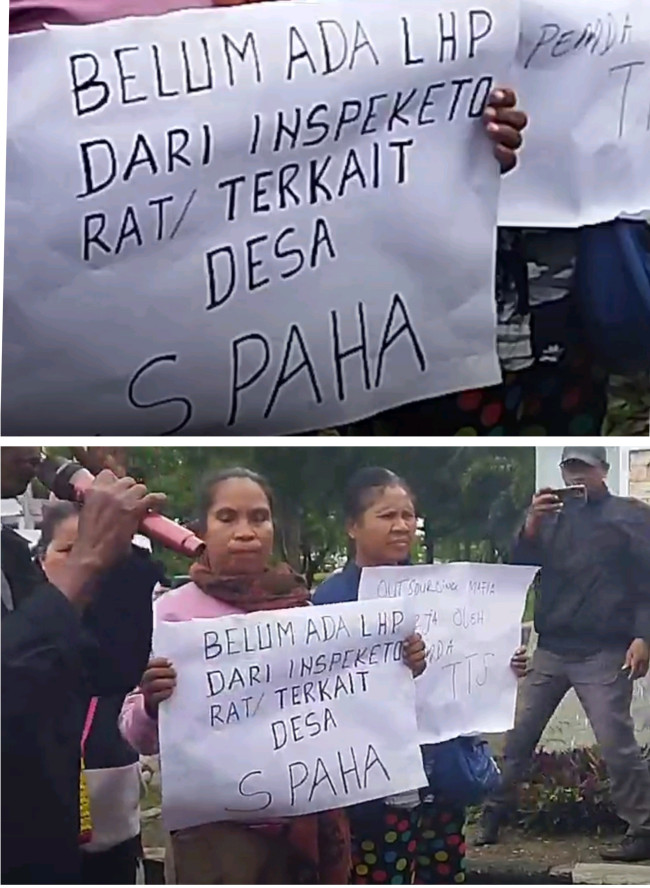 BELUM ADA LHP
DARI INSPEKETO
RAT/ TERKAIT
DESA
SPAHA
PEMDA
BELUM ADA LHP
DARI INSPEKETO
RAT/ TERKAIT
DESA
SPAHA
OUTSOURCING MAFIA
OLEH
TTS